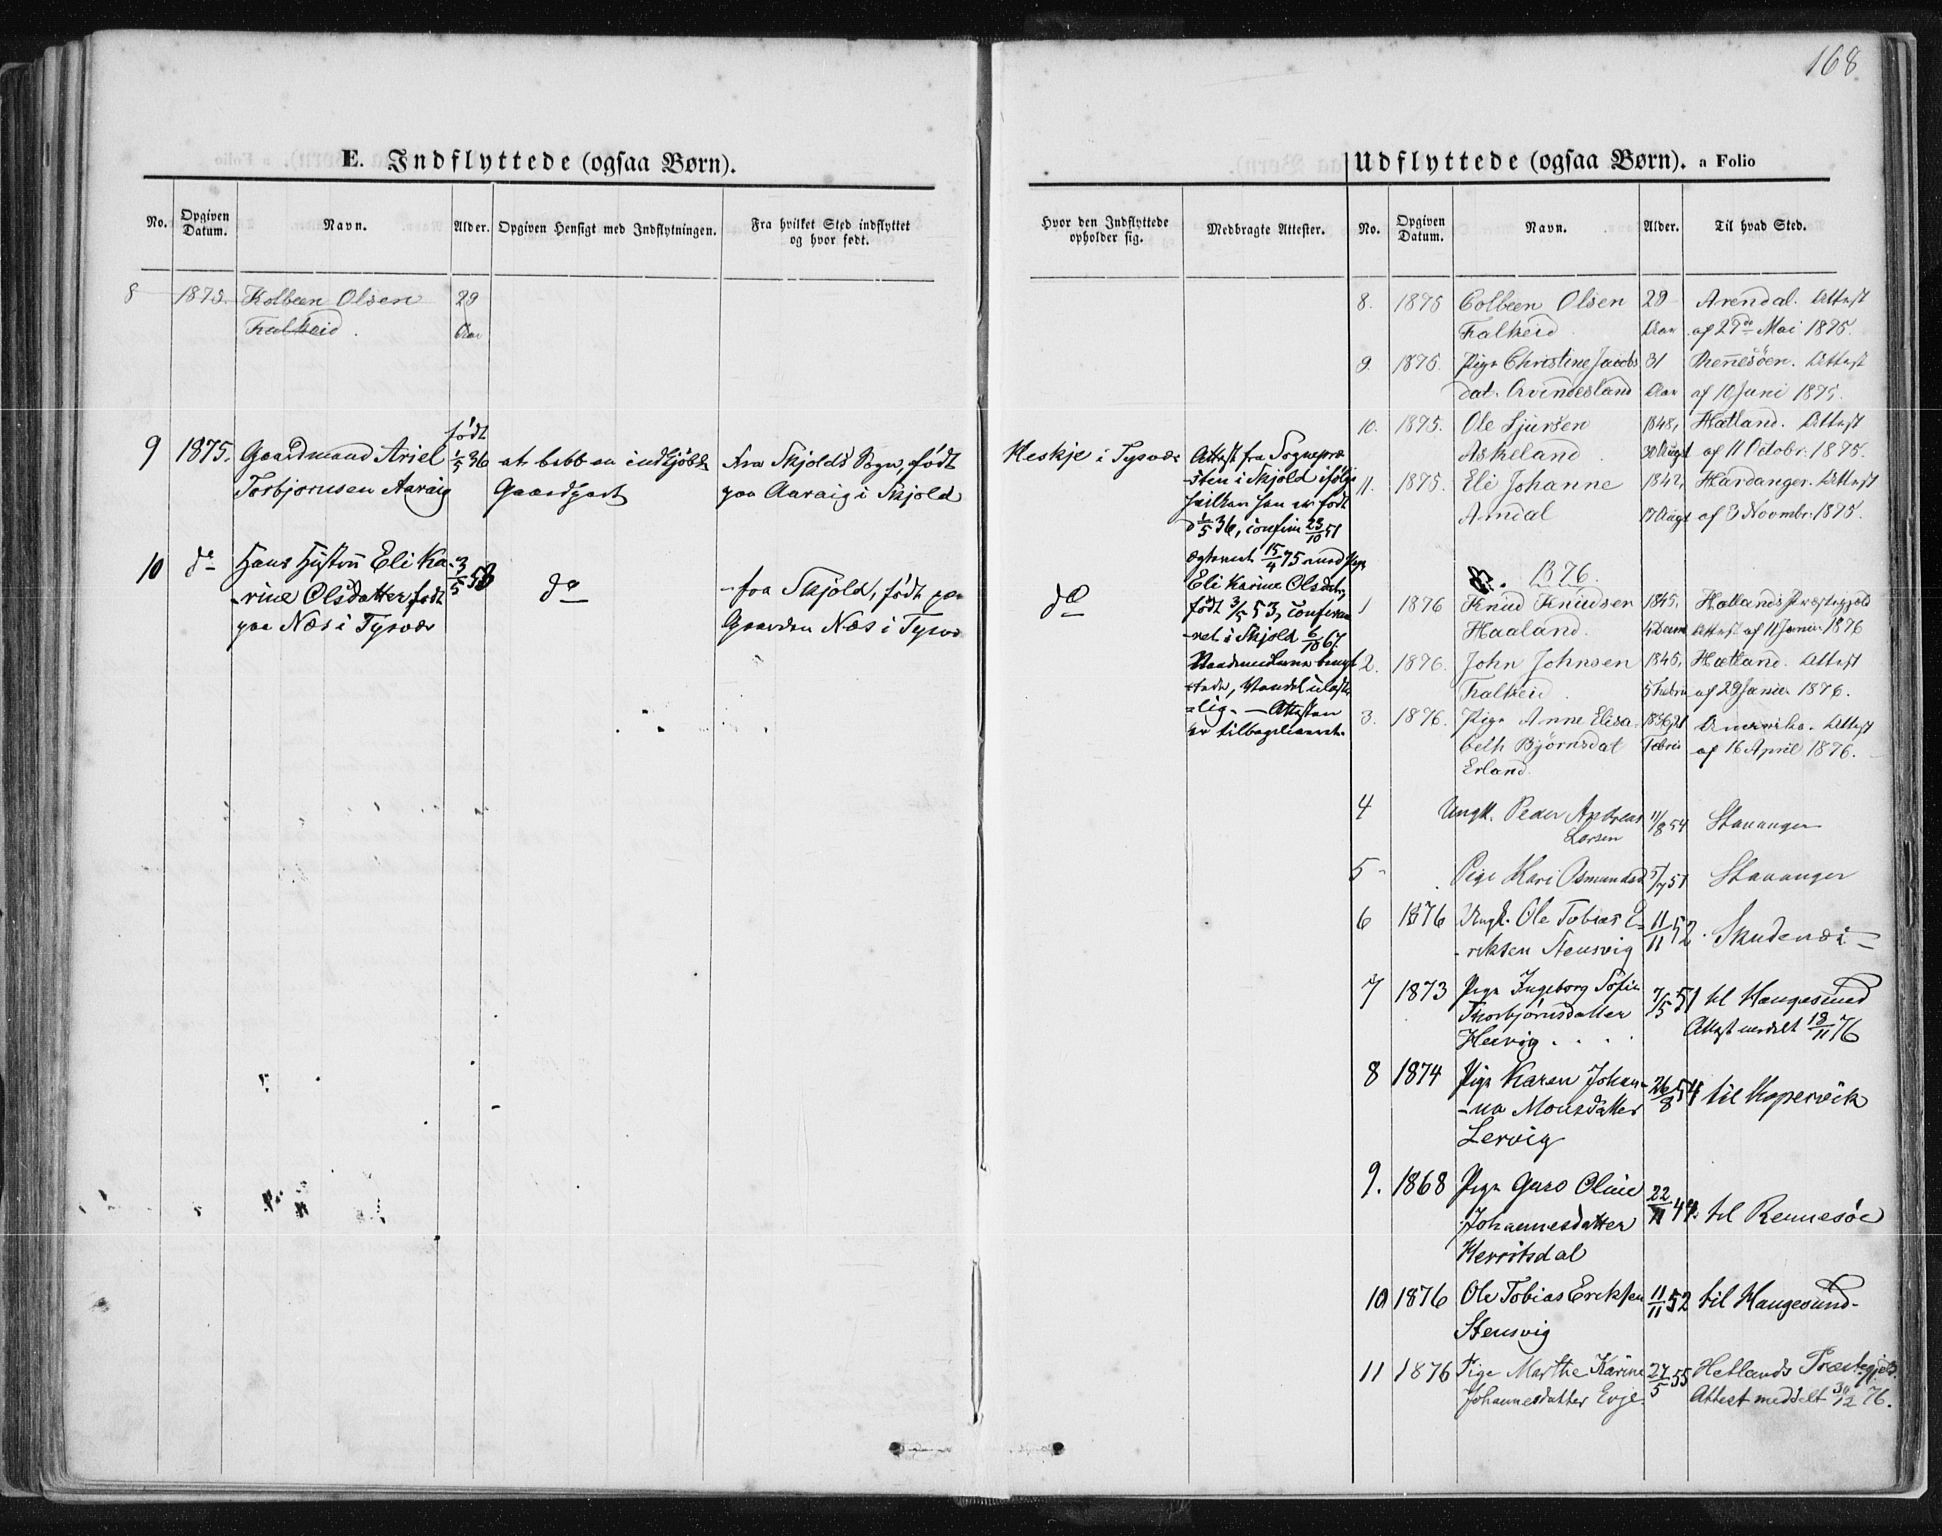 168
E. Indflyttede (ogsaa Børn).
No.
Opgiven
Datum.
Navn.
Alder.
Opgiven Hensigt med Indflytningen.
Fra hvilket Sted indflyttet
og hvor født.
8 1875. Kolbeen Olsen 29
Falkeid. Aar
født
9 1875. Gaardmand Ariel 1/5 36 at bebo en indkjöbt Fra Skjolds Sogn, født
Torbjornsen Aaraig Gaardpart paa Aaraig i Skjold
10 do Hans Hustru Eli Ka- 3/5 53 do fra Skjold, født paa
-rine Olsdatter, født Gaarden Næs i Tysvær
paa Næs i Tysvær
Hvor den Indflyttede
opholder sig.
Medbragte Attester.
Heskje i Tysvær
do
Attest fra Sognepræ-
-sten i Skjold ifölge
hvilken han er født
d 1/5 36, confirm 23/10 51
ægteviet 15/4 75 med Pige
Eli Karine Olsdatr,
født 3/5 53, confirme-
-ret i Skjold 6/10 67.
-lig. — Attesten
er tilbageleveret.
Udflyttede (ogsaa Børn). a Folio
No.
Opgiven
Datum.
Navn.
Alder.
Til hvad Sted.
8. 1875 Colbeen Olsen 29 Arendal. Attest
Falkeid. Aar af 29de Mai 1875.
9. 1875. Pige Christine Jacobs 31 Rennesöen. Attest
dat. Arvindesland Aar af 10 Juni 1875.
10. 1875. Ole Sjursen 1848, Hætland. Attest
Askeland 30 Augt af 11 Octobr. 1875.
11. 1875. Eli Johanne 1842, Hardanger. Attest
Amdal 17 Augt af 3 Novmbr. 1875.
1876.
1 1876 Knud Knudsen 1845, Hætlands Præstegjeld
Haaland. 4 Decm Attest af 11 Januar 1876
2. 1876. John Johnsen 1845, Hætland. Attest
Falkeid. 5 Febru af 29 Januar 1876.
3. 1876. Pige Anne Elisa- 1856, 21 Amerika. Attest
beth Björnsdat Febru af 16 April 1876.
Erland.
4 Ungk. Peder Andreas 11/8 54 Stavanger
Larsen
5 Pige Kari Osmundsd. 5/7 51 Stavanger
6 1876 Ungk. Ole Tobias E- 11/11 52 Skudenæs
-riksen Stensvig
7 1873 Pige Ingeborg Sofie 7/5 51 til Haugesund
Thorbjørnsdatter Attest meddelt 18/11 76
Hervig . . . .
8 1874 Pige Karen Johan- 26/8 54 til Kopervik
-na Monsdatter
Lervig
9. 1868 Pige Guro Oline 22/11 44. til Rennesöe
Johannesdatter
Kerritsdal
10 1876 Ole Tobias Eriksen 11/11 52 til Haugesund.
Stensvig
11 1876 Pige Marthe Karine 27/5 55 Hetlands Præstegjeld.
Johannesdatter Evje. Attest meddelt 30/12 76.